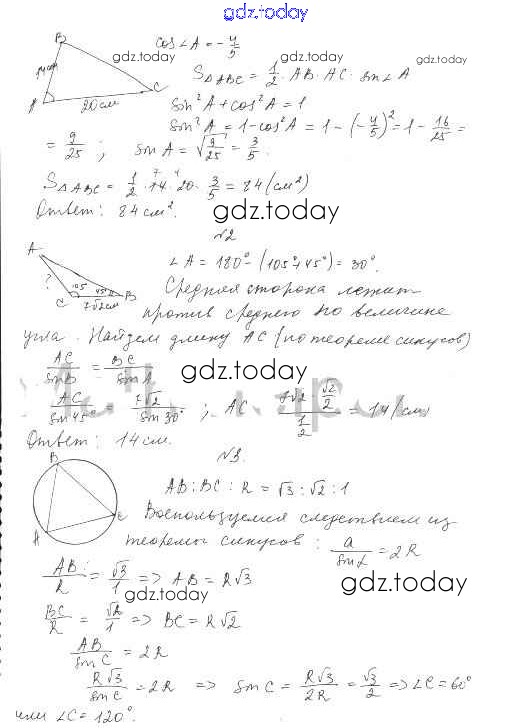 gdz.today
B
cos∠A = -4/5
14см
gdz.today gdz.today gdz.today
A
20см
C
S△ABC = 1/2 · AB · AC · sin∠A
sin²A + cos²A = 1
sin²A = 1 - cos²A = 1 - (-4/5)² = 1 - 16/25 =
= 9/25 ; sin A = √9/25 = 3/5.
S△ABC = 1/2 · 14 · 20 · 3/5 = 84 (см²)
Ответ: 84 см².
gdz.today
№2
A
∠A = 180° - (105°+45°) = 30°.
?
105
45°
C
B
7√2см
Средняя сторона лежит
против среднего по величине
угла. Найдем длину AC (по теореме синусов)
AC/sinB = BC/sinA
gdz.today
AC/sin45° = 7√2/sin30° ; AC = (7√2 · √2/2)/(1/2) = 14 (см)
Ответ: 14 см.
№3.
B
AB : BC : R = √3 : √2 : 1
C
Воспользуемся следствием из
A
теоремы синусов: a/sinα = 2R
AB/R = √3/1 => AB = R√3
gdz.today
BC/R = √2/1 => BC = R√2
gdz.today
AB/sinC = 2R
R√3/sinC = 2R => sinC = R√3/2R = √3/2 => ∠C = 60°
или ∠C = 120°.